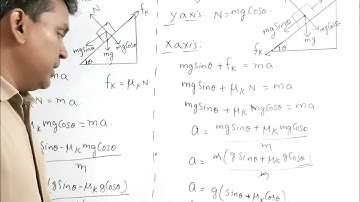 N
fₖ
mgSinθ
mg
mgCosθ
θ
fₖ = μₖ N
N = ma
μₖ mgCosθ = ma
Sinθ - μₖ mgCosθ
m
(gSinθ - μₖ gCosθ)
y axis: N = mgCosθ
x axis:
mgSinθ + fₖ = ma
mgSinθ + μₖ N = ma
mgSinθ + μₖ mgCosθ = ma
a = mgSinθ + μₖ mgCosθ
m
a = m(gSinθ + μₖ gCosθ)
m
a = g(Sinθ + μₖ Cosθ)
mgSinθ
mg
mgCosθ
fₖ
θ